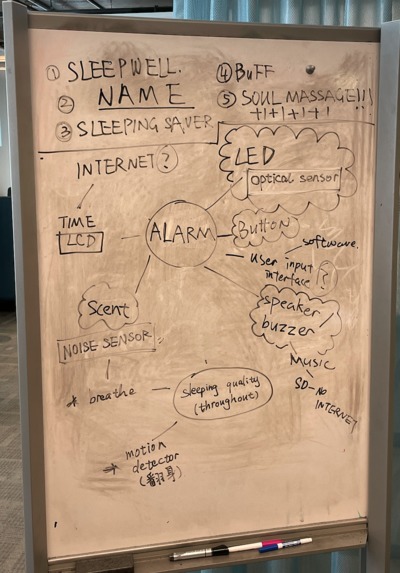 ① SLEEPWELL.
② NAME
③ SLEEPING SAVER
④ BUFF
⑤ SOUL MASSAGE!!!
+1+1+1+1
INTERNET?
LED
optical sensor
TIME
LCD
ALARM
Button
software.
user input
interface {?}
Scent
speaker/
buzzer
NOISE SENSOR
Music
SD-no
INTERNET
* breathe
sleeping quality
(throughout)
* motion
detector
(翻身)